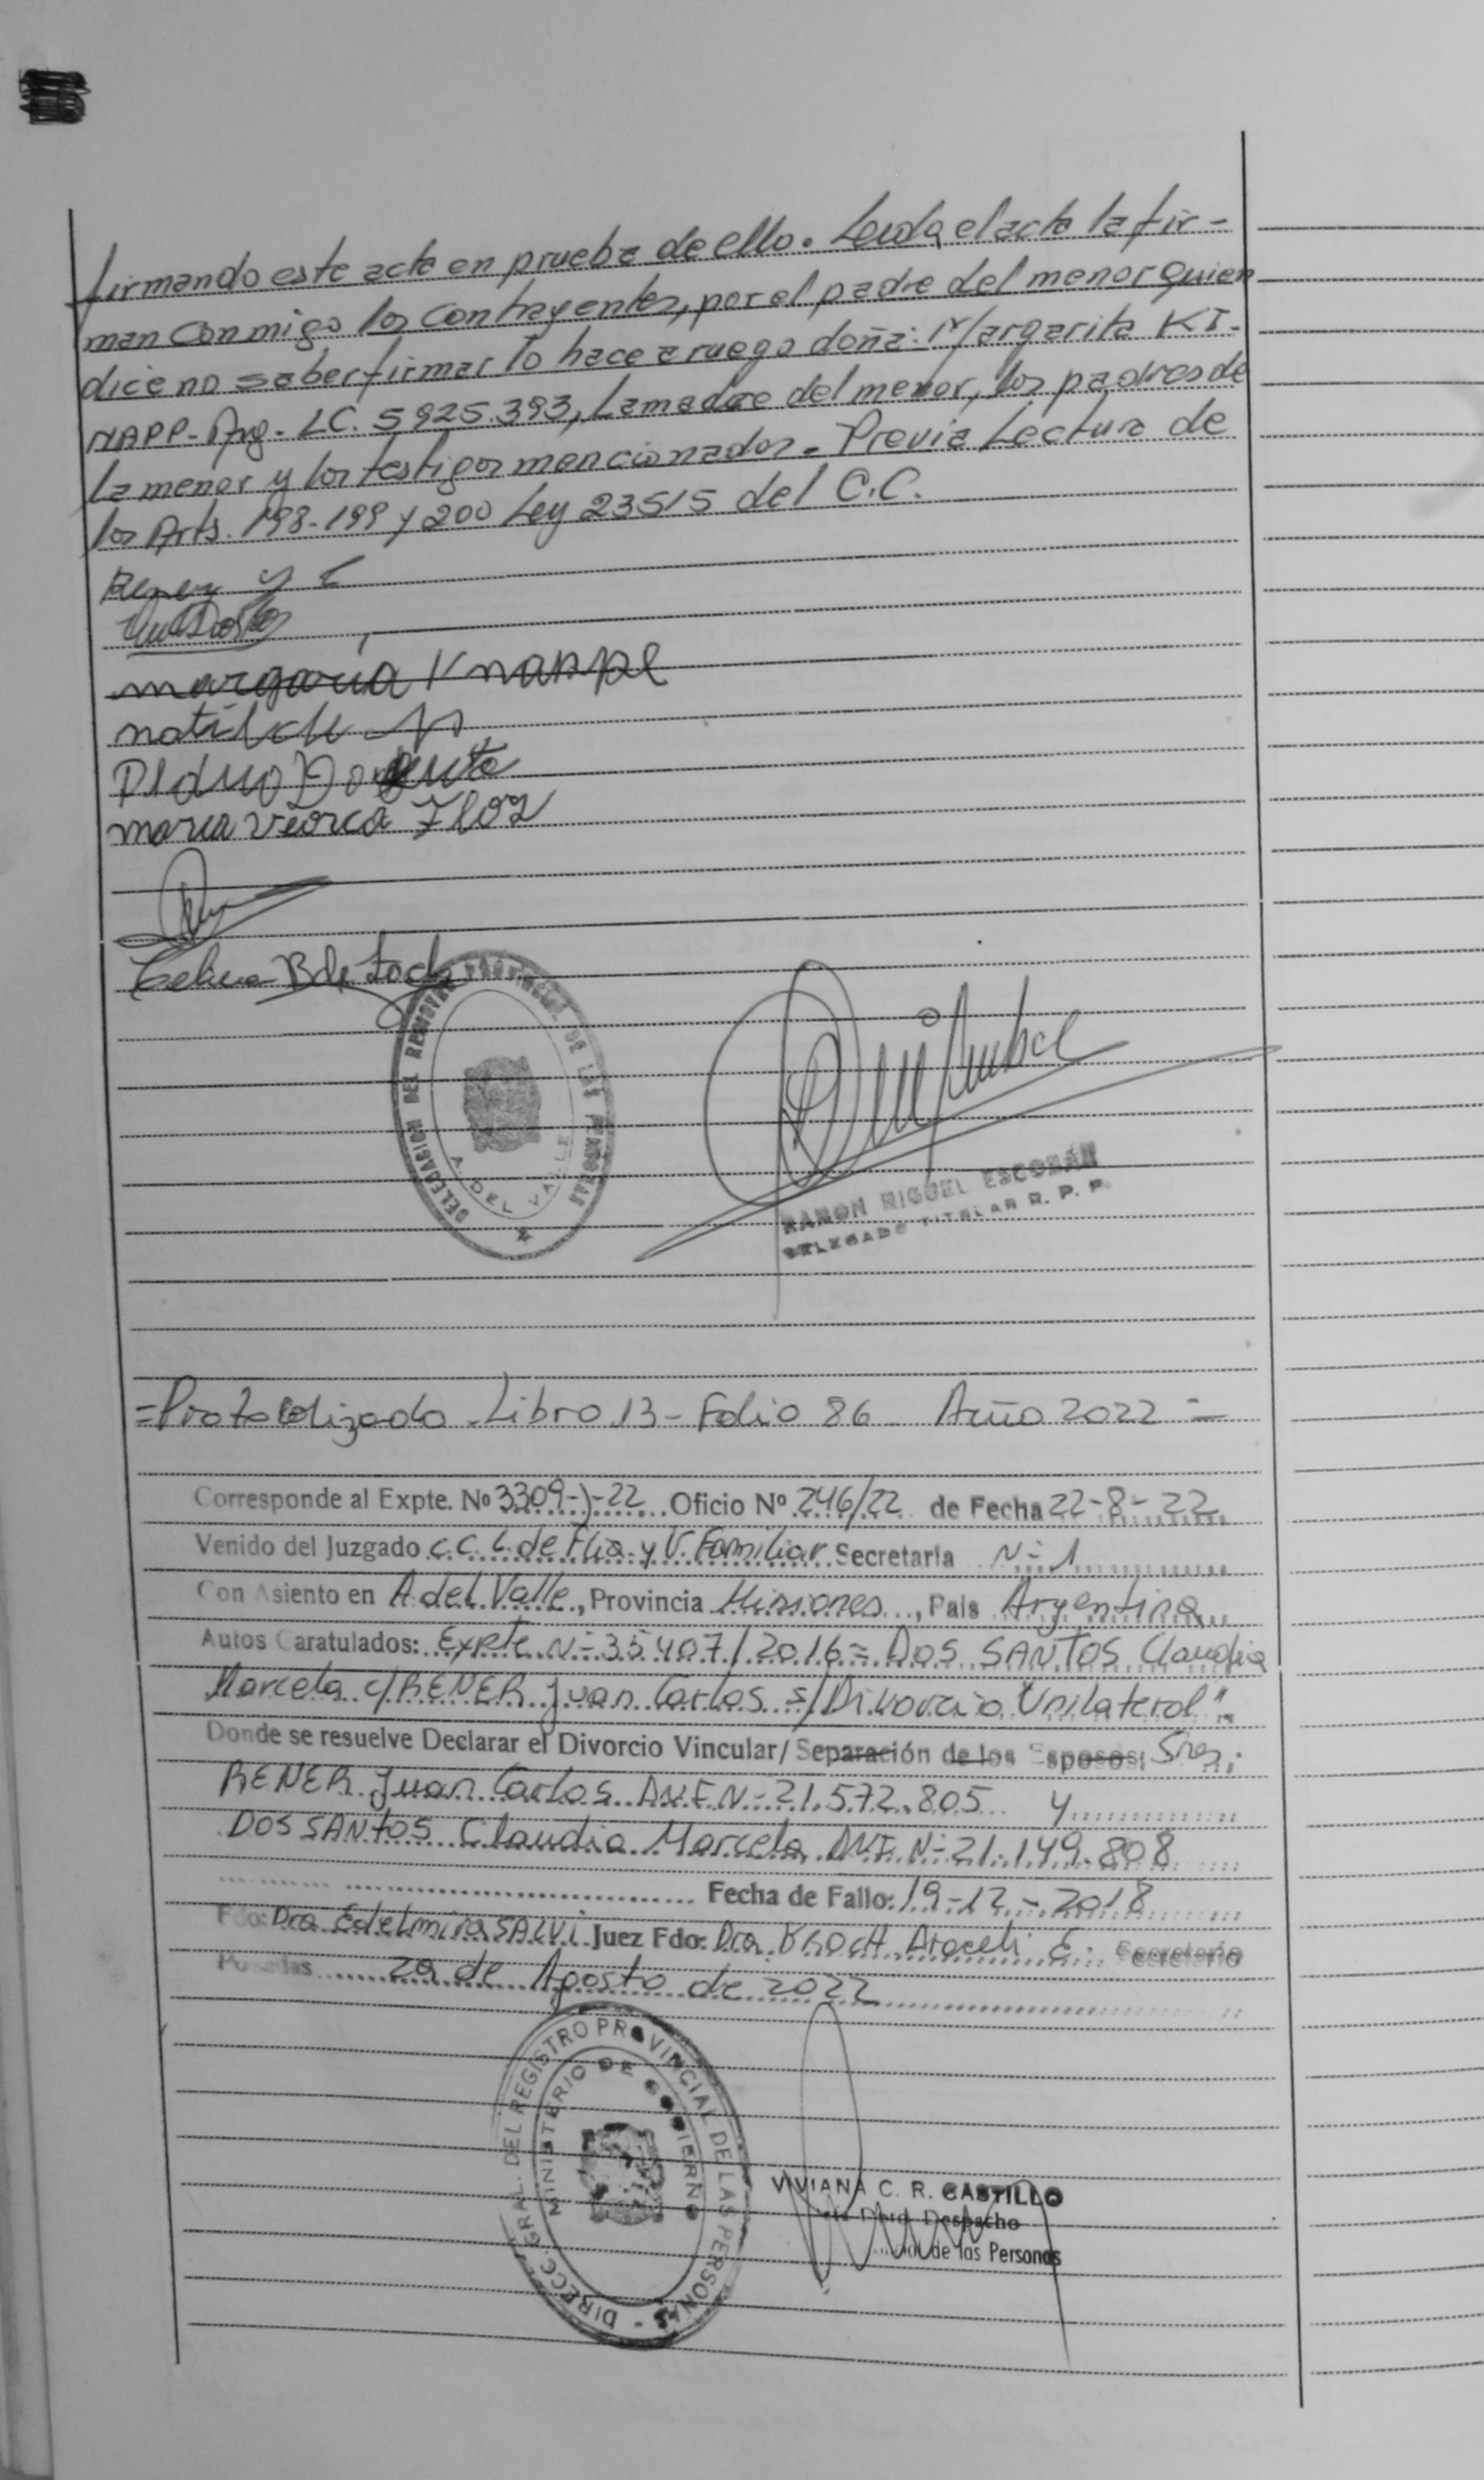 firmando este acto en prueba de ello. Leida el acta la fir-
man conmigo los contrayentes, por el padre del menor quien
dice no saber firmar lo hace a ruego doña: Margarita KI-
NAPP- Arg. LC. 5925.393, La madre del menor, los padres de
la menor y los testigos mencionados. Previa Lectura de
los Arts. 198-199 y 200 Ley 23515 del C.C.
Rener
margarita Knappe
matilde
Pedro
maria
Celina B de
DELEGACION DEL REGISTRO PROVINCIAL DE LAS PERSONAS
A. DEL VALLE
RAMON MIGUEL ESCOBAR
DELEGADO TITULAR R. P. P.
=Protocolizado - Libro 13 - Folio 86 Año 2022 =
Corresponde al Expte. Nº 3309-J-22 Oficio Nº 246/22 de Fecha 22-8-22
Venido del Juzgado C.C. L. de Flia y V. Familiar Secretaria Nº 1
Con Asiento en A. del Valle, Provincia Misiones, Pais Argentina
Autos Caratulados: Expte Nº 35407/2016 = DOS SANTOS Claudia
Marcela c/RENER Juan Carlos s/Divorcio Unilateral".
Donde se resuelve Declarar el Divorcio Vincular/ Separación de los Esposos: Sres:
RENER Juan Carlos D.N.I. Nº 21.572.805 y
DOS SANTOS Claudia Marcela DNI. Nº 21.149.808
Fecha de Fallo: 19-12-2018
Fdo: Dra Edelmira SALVI Juez Fdo: Dra. Araceli E. Secretario
Posadas 29 de Agosto de 2022
DIRECC. GRAL. DEL REGISTRO PROVINCIAL DE LAS PERSONAS
MINISTERIO DE GOBIERNO
VIVIANA C. R. CASTILLO
Dpto. Despacho
de las Personas